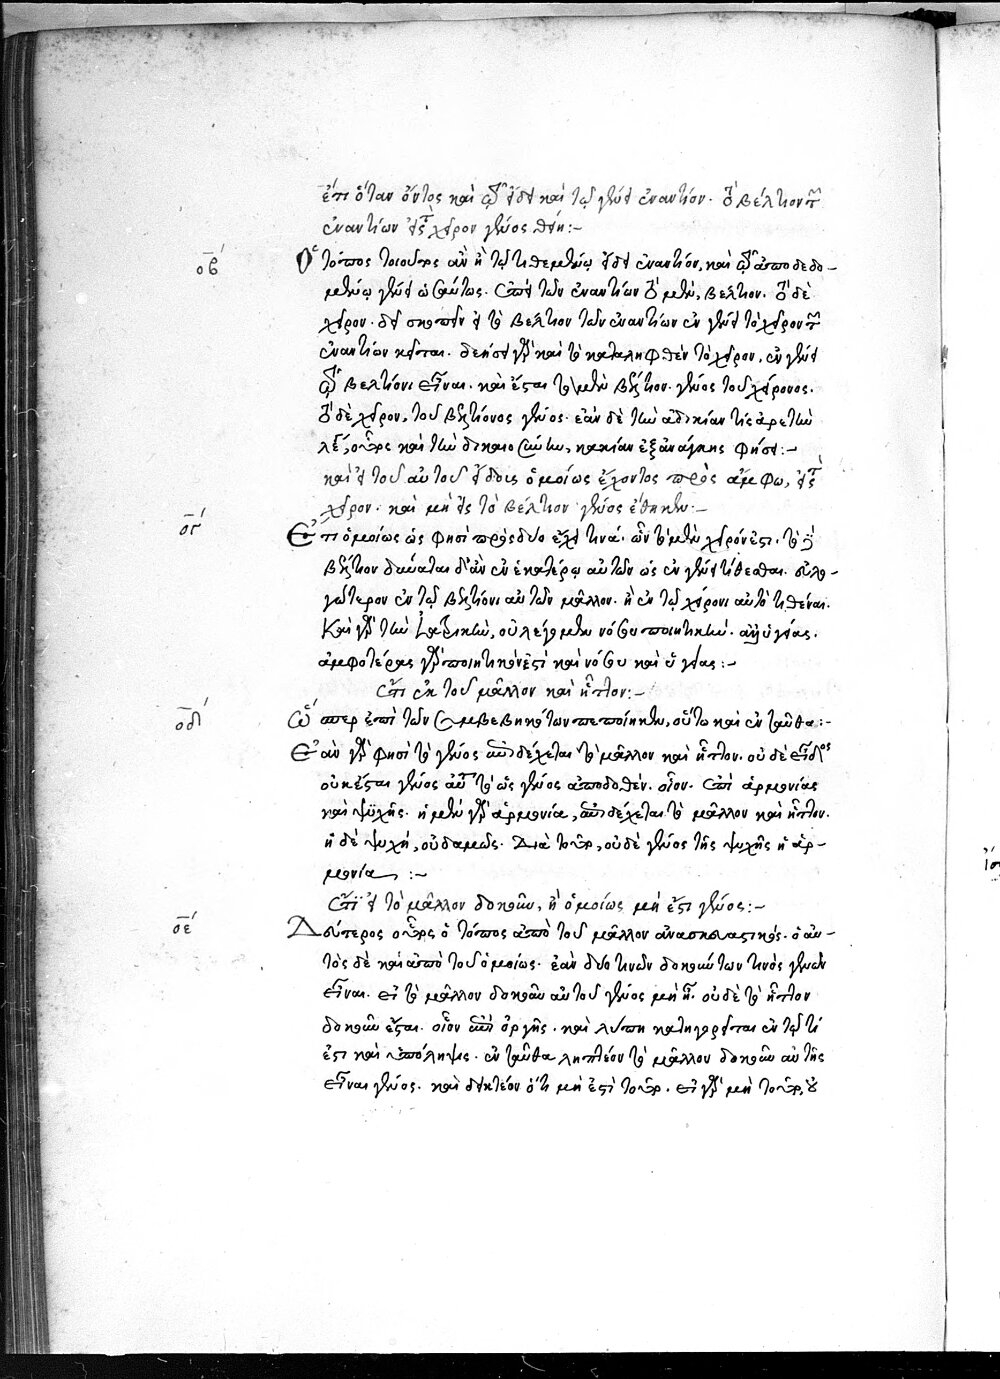 ἔτι ὅταν ὄντος καὶ τῷ εἴδει καὶ τῷ γένει ἐναντίου. τὸ βέλτιον τῶν
ἐναντίων εἰς τὸ χεῖρον γένος θῇ:~
οβ´ Ὁ τόπος τοιοῦτος ἂν ᾖ τῷ τιθεμένῳ εἴδει ἐναντίον, καὶ τῷ ἀποδεδο-
μένῳ γένει ὡσαύτως. ἐπεὶ τῶν ἐναντίων τὸ μὲν, βέλτιον. τὸ δὲ
χεῖρον. δεῖ σκοπεῖν εἰ τὸ βέλτιον τῶν ἐναντίων ἐν γένει τὸ χεῖρον τῶν
ἐναντίων κεῖται. δεήσει γὰρ καὶ τὸ καταληφθὲν τὸ χεῖρον, ἐν γένει
τῷ βελτίονι εἶναι. καὶ ἔσται τὸ μὲν βέλτιον. γένος τοῦ χείρονος.
τὸ δὲ χεῖρον, τοῦ βελτίονος γένος. ἐὰν δὲ τὴν ἀδικίαν τίς ἀρετὴν
λέξῃ, οὗτος καὶ τὴν δικαιοσύνην, κακίαν ἐξανάγκης φήσει:~
καὶ εἰ τοῦ αὐτοῦ εἴδους ὁμοίως ἔχοντος πρὸς ἄμφω, εἰς τὸ
χεῖρον. καὶ μὴ εἰς τὸ βέλτιον γένος ἔθηκεν:~
ογ´ Ἔτι ὁμοίως ὡς φησὶ πρὸς δύο ἔχει τινά. ὧν τὸ μὲν χεῖρόν ἐστι. τὸ δὲ
βέλτιον δύναται δ' ἂν ἐν ἑκατέρῳ αὐτῶν ὡς ἐν γένει τίθεσθαι. εὐλο-
γώτερον ἐν τῷ βελτίονι αὐτῶν μᾶλλον. ἢ ἐν τῷ χείρονι αὐτὸ τιθέναι.
Καὶ γὰρ τὴν ἰατρικὴν, οὐ λέγομεν νόσου ποιητικὴν. ἀλλ' ὑγείας.
ἀμφοτέρας γὰρ ποιητικόν ἐστὶ καὶ νόσου καὶ ὑγείας:~
ἔτι ἐκ τοῦ μᾶλλον καὶ ἧττον:~
οδ´ Ὥσπερ ἐπὶ τῶν συμβεβηκότων πεποίηκεν, οὕτω καὶ ἐνταῦθα:~
Ἐὰν γὰρ φησὶ τὸ γένος ἐπιδέχεται τὸ μᾶλλον καὶ ἧττον. οὐ δὲ εἶδος
οὐκ ἔσται γένος αὐτοῦ τὸ ὡς γένος ἀποδοθέν. οἷον. ἐπὶ ἁρμονίας
καὶ ψυχῆς. ἡ μὲν γὰρ ἁρμονία, ἐπιδέχεται τὸ μᾶλλον καὶ ἧττον.
ἡ δὲ ψυχή, οὐδαμῶς. Διὰ τοῦτο, οὐδὲ γένος τῆς ψυχῆς ἡ ἁρ-
μονία:~
ἔτι εἰ τὸ μᾶλλον δοκοῦν, ἢ ὁμοίως μή ἐστι γένος:~
οε´ Δεύτερος οὗτος ὁ τόπος ἀπὸ τοῦ μᾶλλον ἀνασκευαστικός. ὁ αὐ-
τὸς δὲ καὶ ἀπὸ τοῦ ὁμοίως. ἐὰν δύο τινῶν δοκούντων τινὸς γενῶν
εἶναι. εἰ τὸ μᾶλλον δοκοῦν αὐτοῦ γένος μὴ ᾖ. οὐδὲ τὸ ἧττον
δοκοῦν ἔσται. οἷον ἐπὶ ὀργῆς. καὶ λύπη κατηγορεῖται ἐν τῷ τί
ἐστι καὶ ὑπόληψις. ἐνταῦθα ληπτέον τὸ μᾶλλον δοκοῦν αὐτῆς
εἶναι γένος. καὶ δεικτέον ὅτι μὴ ἐστὶ τοῦτο. εἰ γὰρ μὴ τοῦτο, οὐ